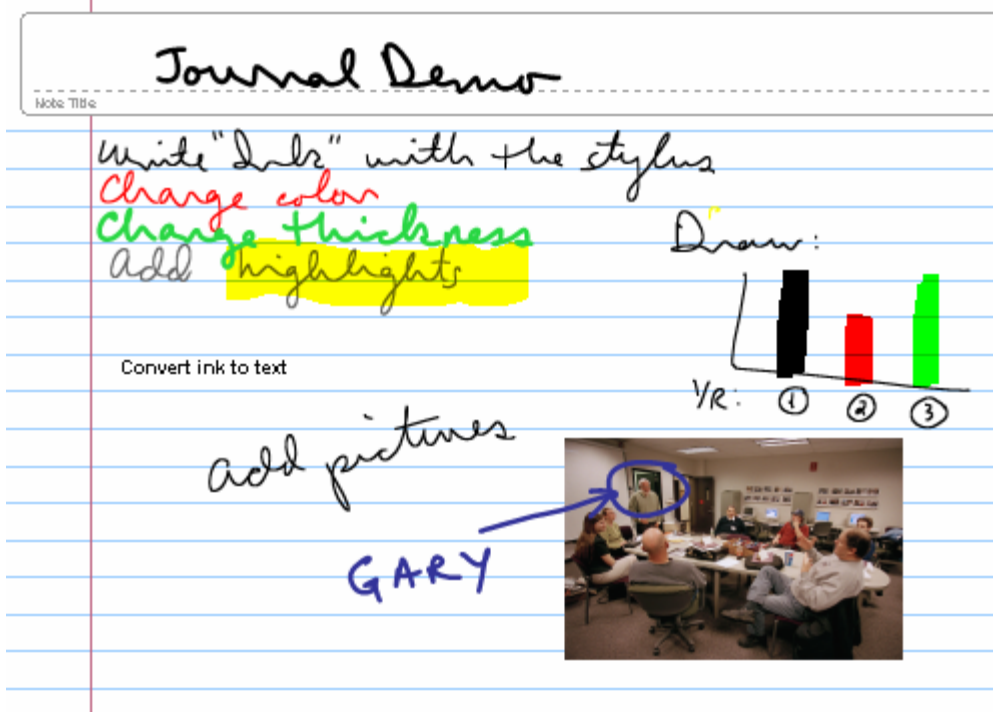 Journal Demo
Note Title
Write "Ink" with the stylus
Change color
Change thickness
Add highlights
Draw:
Convert ink to text
YR: 1 2 3
add pictures
GARY